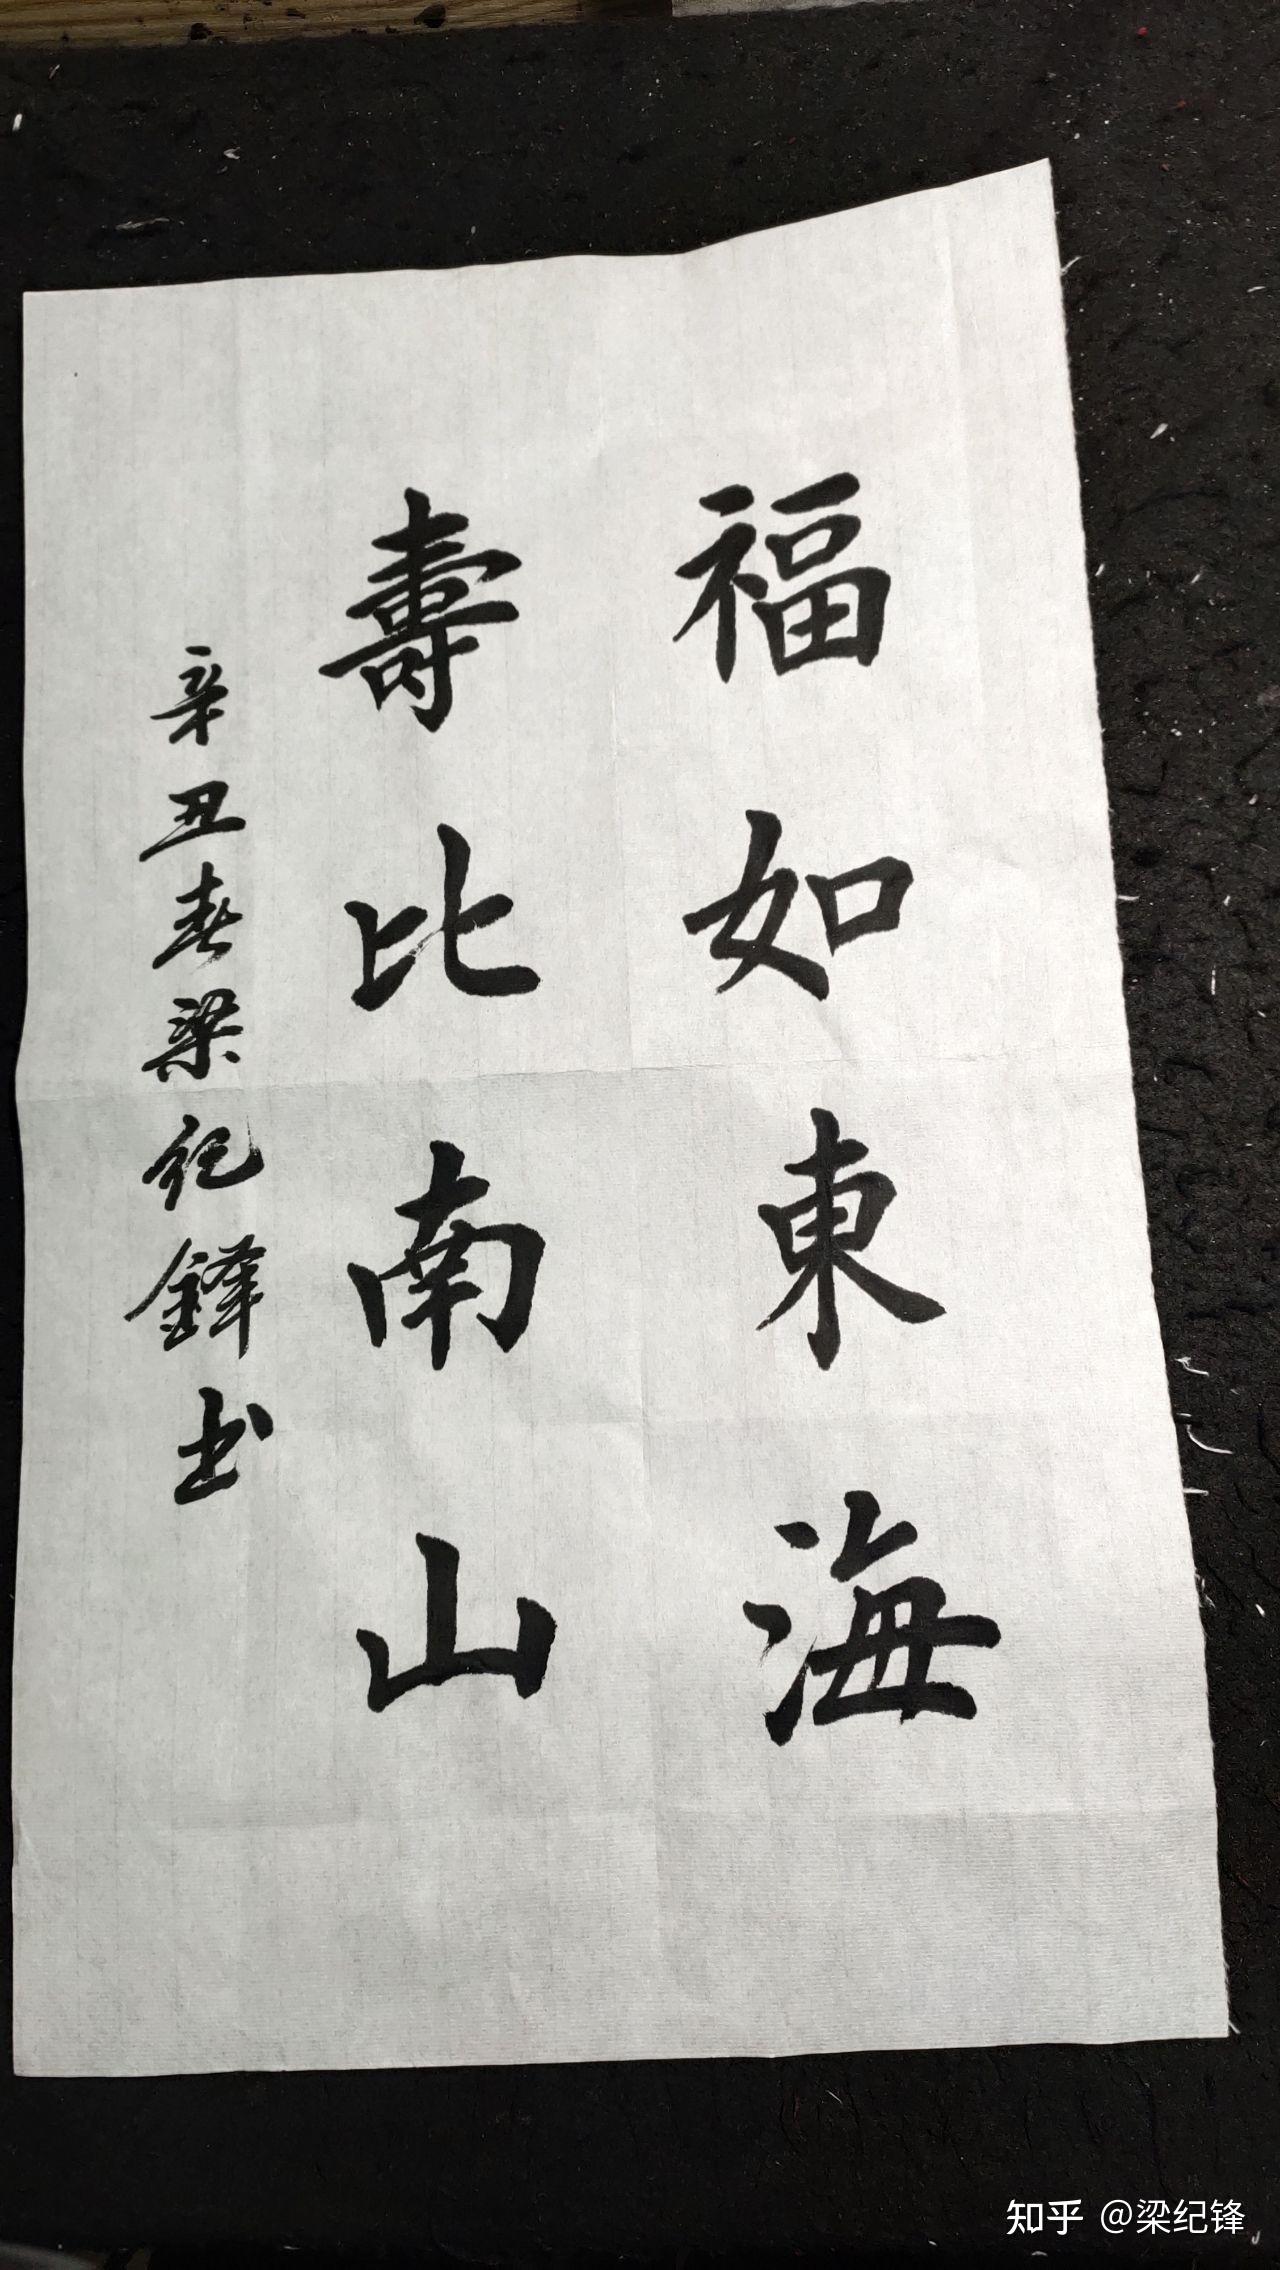 福如東海
壽比南山
辛丑春梁纪鋒书
知乎 @梁纪锋